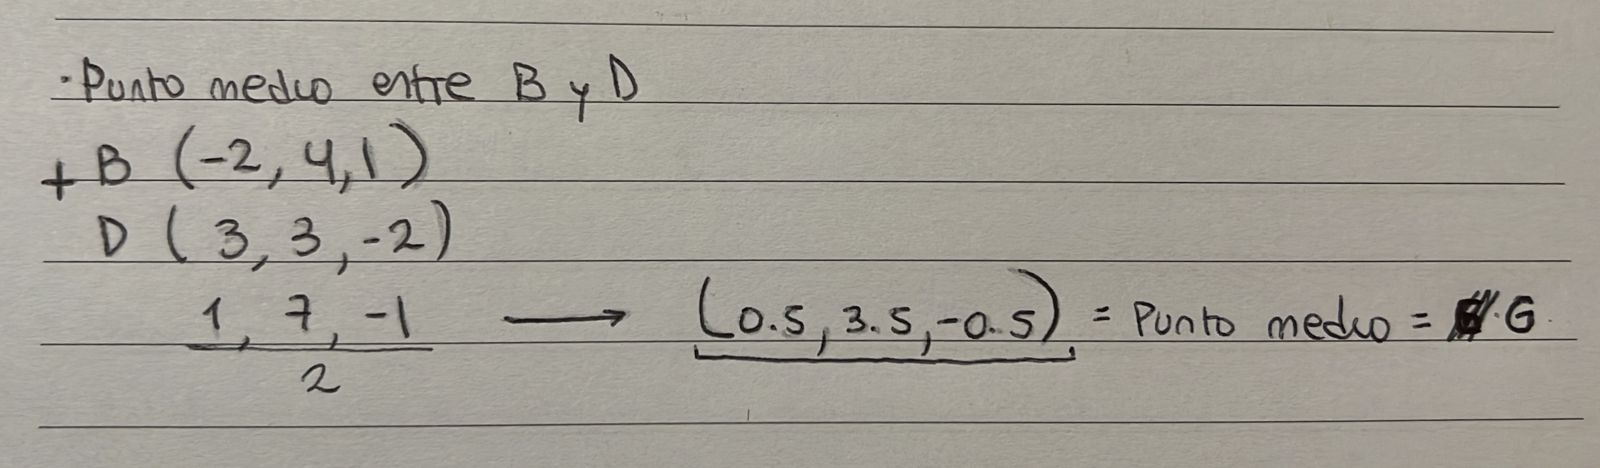 · Punto medio entre B y D
+ B (-2, 4, 1)
D ( 3, 3, -2)
1, 7, -1 ⟶ (0.5, 3.5, -0.5) = Punto medio = G.
2